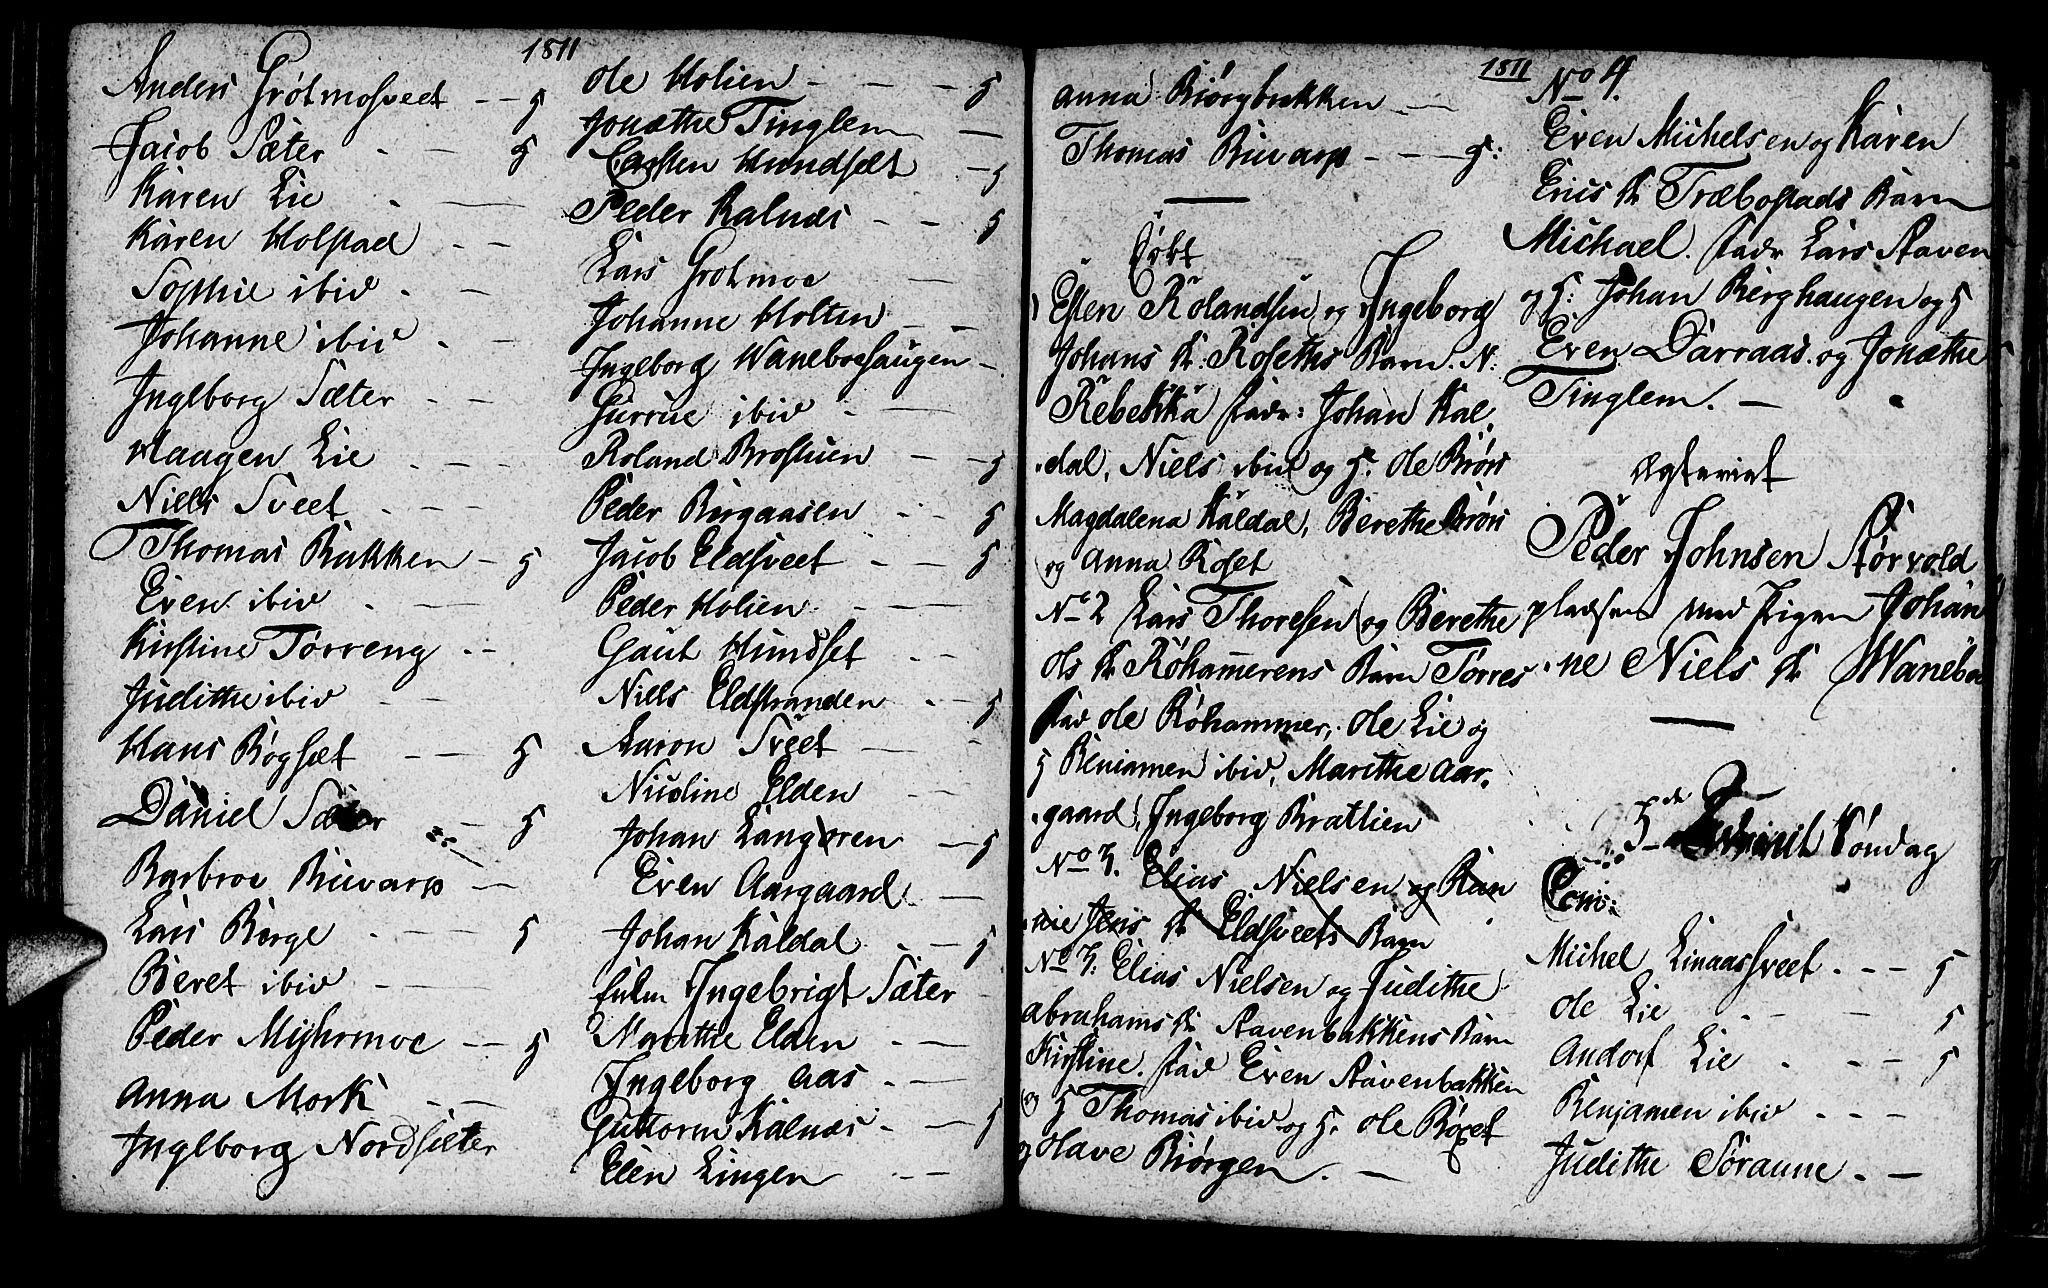 1811
Anders Grótmosveet - - 5
Jacob Sæter - - 5
Karen Lie - —
Karen Holstad - - —
Sophie ibid - —
Johanne ibid - —
Ingeborg Sæter - - —
Haagen Lie - - —
Niels Sveet - - —
Thomas Bakken - 5
Even ibid - —
Kirstine Tørreng - -
Judithe ibid - —
Hans Bøgset - — 5
Daniel Sæter - — 5
Barbroe Biuvarp —
Lars Børge - — 5
Beret ibid - —
Peder Myhrmoe - — 5
Anna Mork - —
Ingeborg Nordsæter
Ole Holien - — - 5
Jonæthe Tinglem —
Carsten Hundsæt - 5
Peder Kalnæs - - 5
Lars Grotmoe —
Johanne Holten - -
Ingeborg Waneboehaugen -
Gurrue ibid - —
Roland Brostuen - — 5
Peder Birgaasen - - 5
Jacob Eldsveet - - 5
Peder Holien - —
Gaut Hundset - —
Niels Eldstranden - - 5
Aaron Sveet — -
Nicoline Elden —
Johan Langøren - 5
Even Aargaard —
Johan Kaldal - — 5
Ingebrigt Sæter -
Marithe Elden - —
Ingeborg Aas - —
Guttorm Kalnæs - — 5
Elen Lingen - —
1811
Anna Biørgbekken - —
Thomas Biuvarp - - - 5:
Døbt
Esten Rolandsen og Ingeborg
Johans Dr: Roseths Barn. N:
Rebekka fadr: Johan Kal-
dal, Niels ibid og 5. Ole Brøn
Magdalena Kaldal, Berethe Brøn
og Anna Roset
No 2 Lars Thoresen og Berethe
Ols Dr Røhammerens Barn Torres
fad Ole Røhammer, Ole Lie og
5 Benjamen ibid, Marithe Aar-
gaard, Ingeborg Bratlien
No 3. Elias Nielsen og Ran
nie Jens Dr Eldsveets Barn
No 3: Elias Nielsen og Judithe
Abrahams Dr Aavenbakkens Barn
Kirstine. fad Even Aavenbakken
og 5 Thomas ibid og 5. Ole Røset
og Olave Biørgen. —
No 4.
Even Michelsen og Karen
Erics Dr Træbostads Barn
Michael. fadr Lars Aaven
og 5: Johan Berghaugen og 5
Even Darraas og Jonæthe
Tinglem. —
Ægteviet
Peder Johnsen Størvold
pladsen med Pigen Johan
ne Niels Dr Waneboe
5de Søndag
Com:
Michel Linaassveet - - - 5
Ole Lie - - - 5
Andorf Lie - - - 5
Benjamen ibid - - -
Judithe Søraune - —